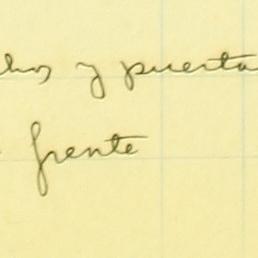 y puerta
frente